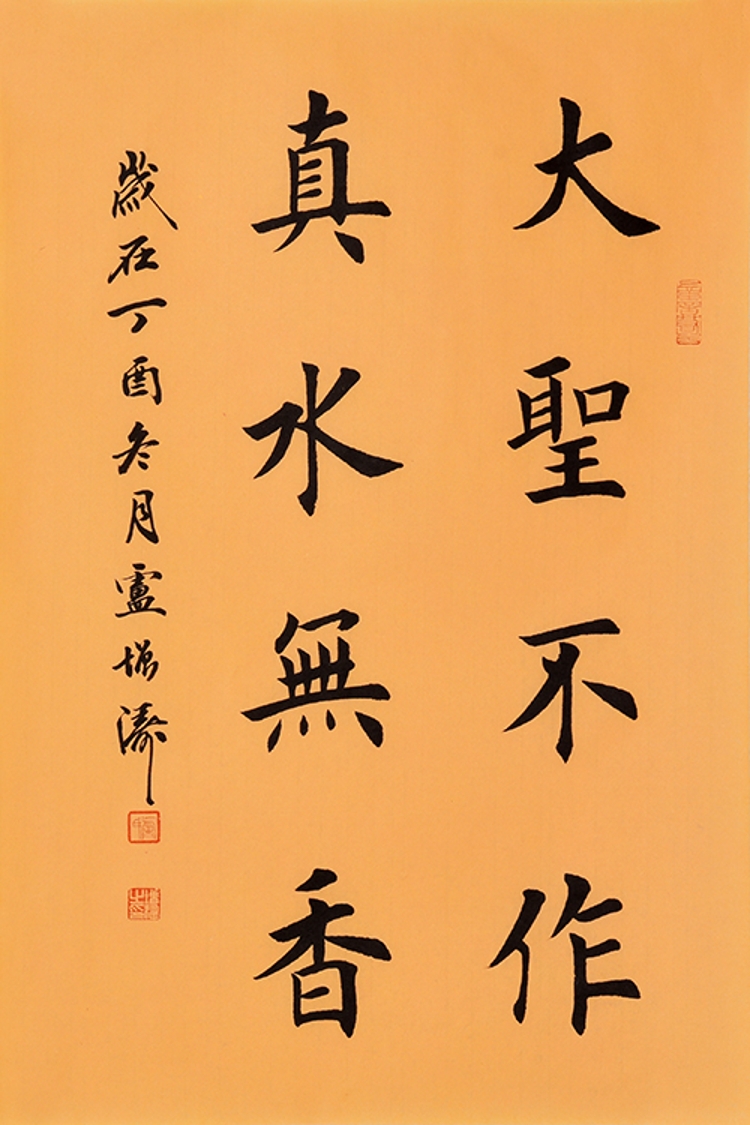 大聖不作
真水無香
歲在丁酉冬月盧增